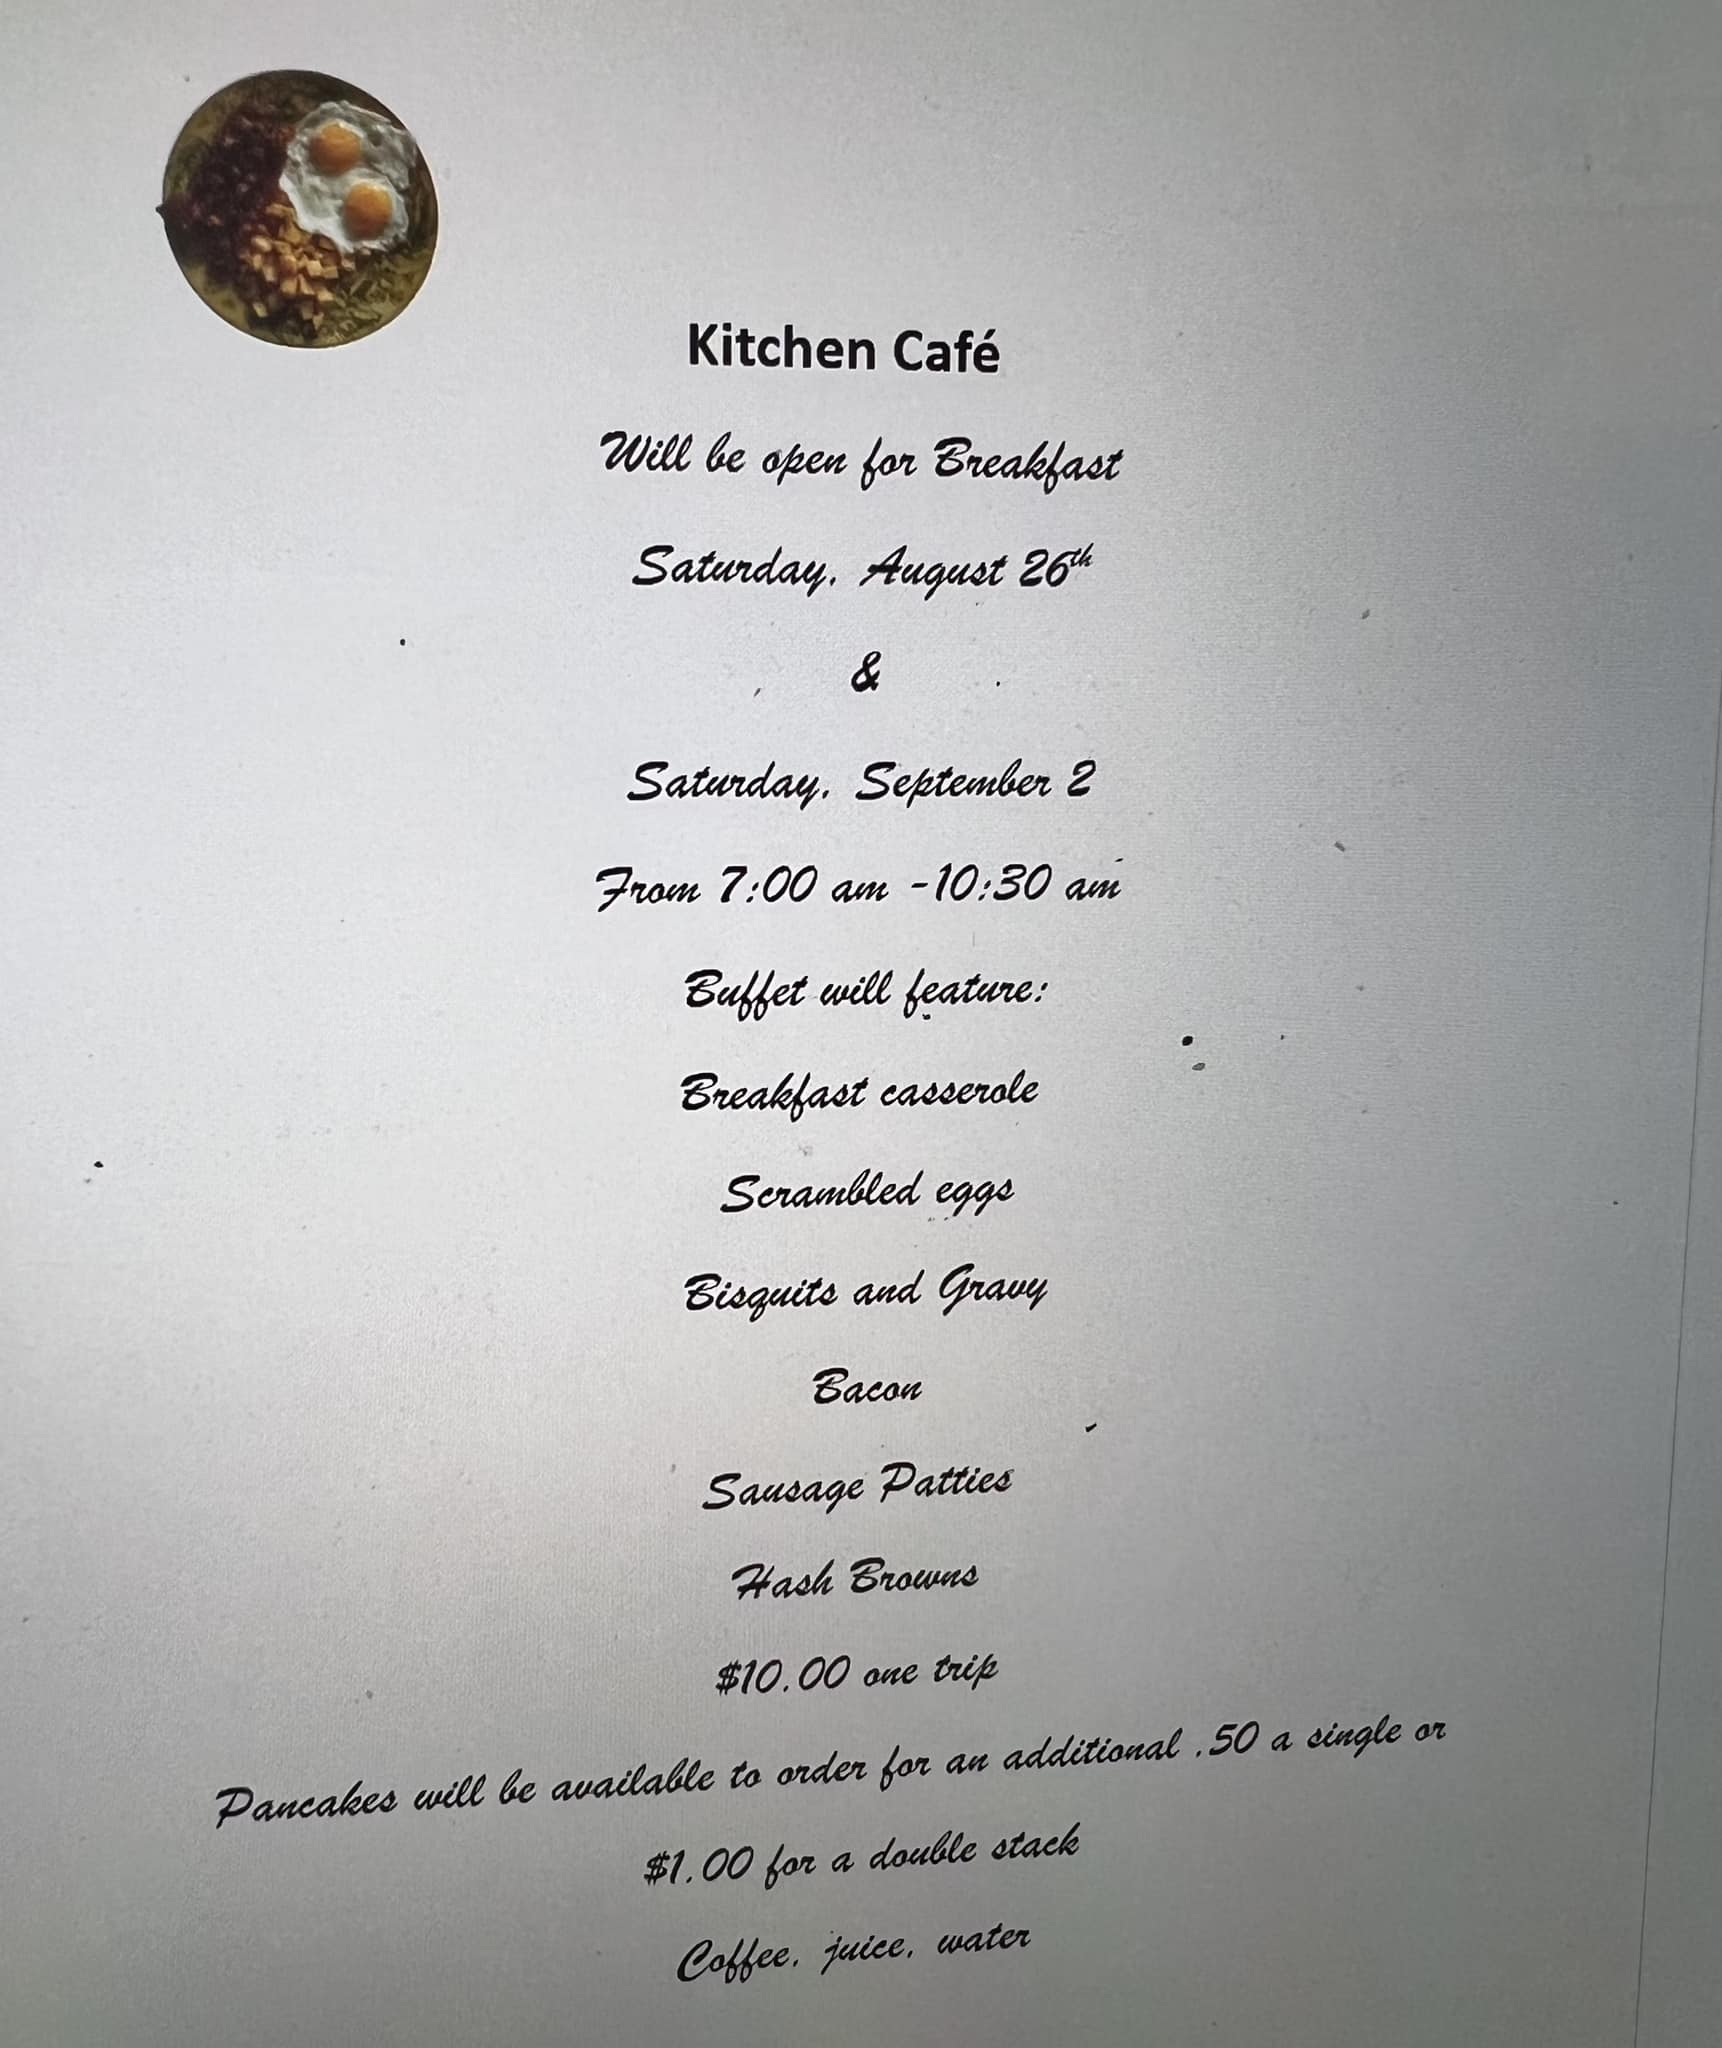 Kitchen Café
Will be open for Breakfast
Saturday, August 26th
&
Saturday, September 2
From 7:00 am -10:30 am
Buffet will feature:
Breakfast casserole
Scrambled eggs
Bisquits and Gravy
Bacon
Sausage Patties
Hash Browns
$10.00 one trip
Pancakes will be available to order for an additional .50 a single or
$1.00 for a double stack
Coffee, juice, water